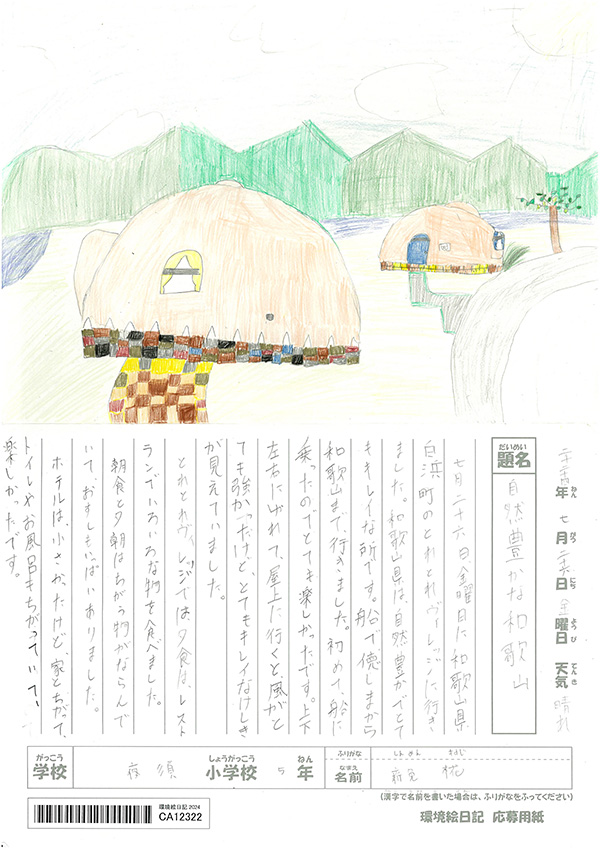 年 七月 二十六日 金曜日 天気 晴れ
ねん がつ にち ようび てんき
だいめい
題名 自然豊かな和歌山
七月二十六日金曜日に和歌山県
白浜町のとれとれヴィレッジに行き
ました。和歌山県は、自然豊かでとて
もキレイな所です。船で徳しまから
和歌山まで、行きました。初めて、船に
乗ったのでとても楽しかったです。上下
左右にゆれて、屋上に行くと、風がと
ても強かったけど、とてもキレイなけしき
が見えていました。
とれとれヴィレッジでは夕食は、レスト
ランでいろいろな物を食べました。
朝食と夕朝はちがう物がならんで
いて、おすしもいっぱいありました。
ホテルは、小さかったけど、家とちがって、
トイレやお風呂もちがっていて、
楽しかったです。
がっこう しょうがっこう ねん ふりがな
学校 夜須 小学校 5 年
なまえ
名前
(漢字で名前を書いた場合は、ふりがなをふってください)
環境絵日記 2024
CA12322
環境絵日記 応募用紙